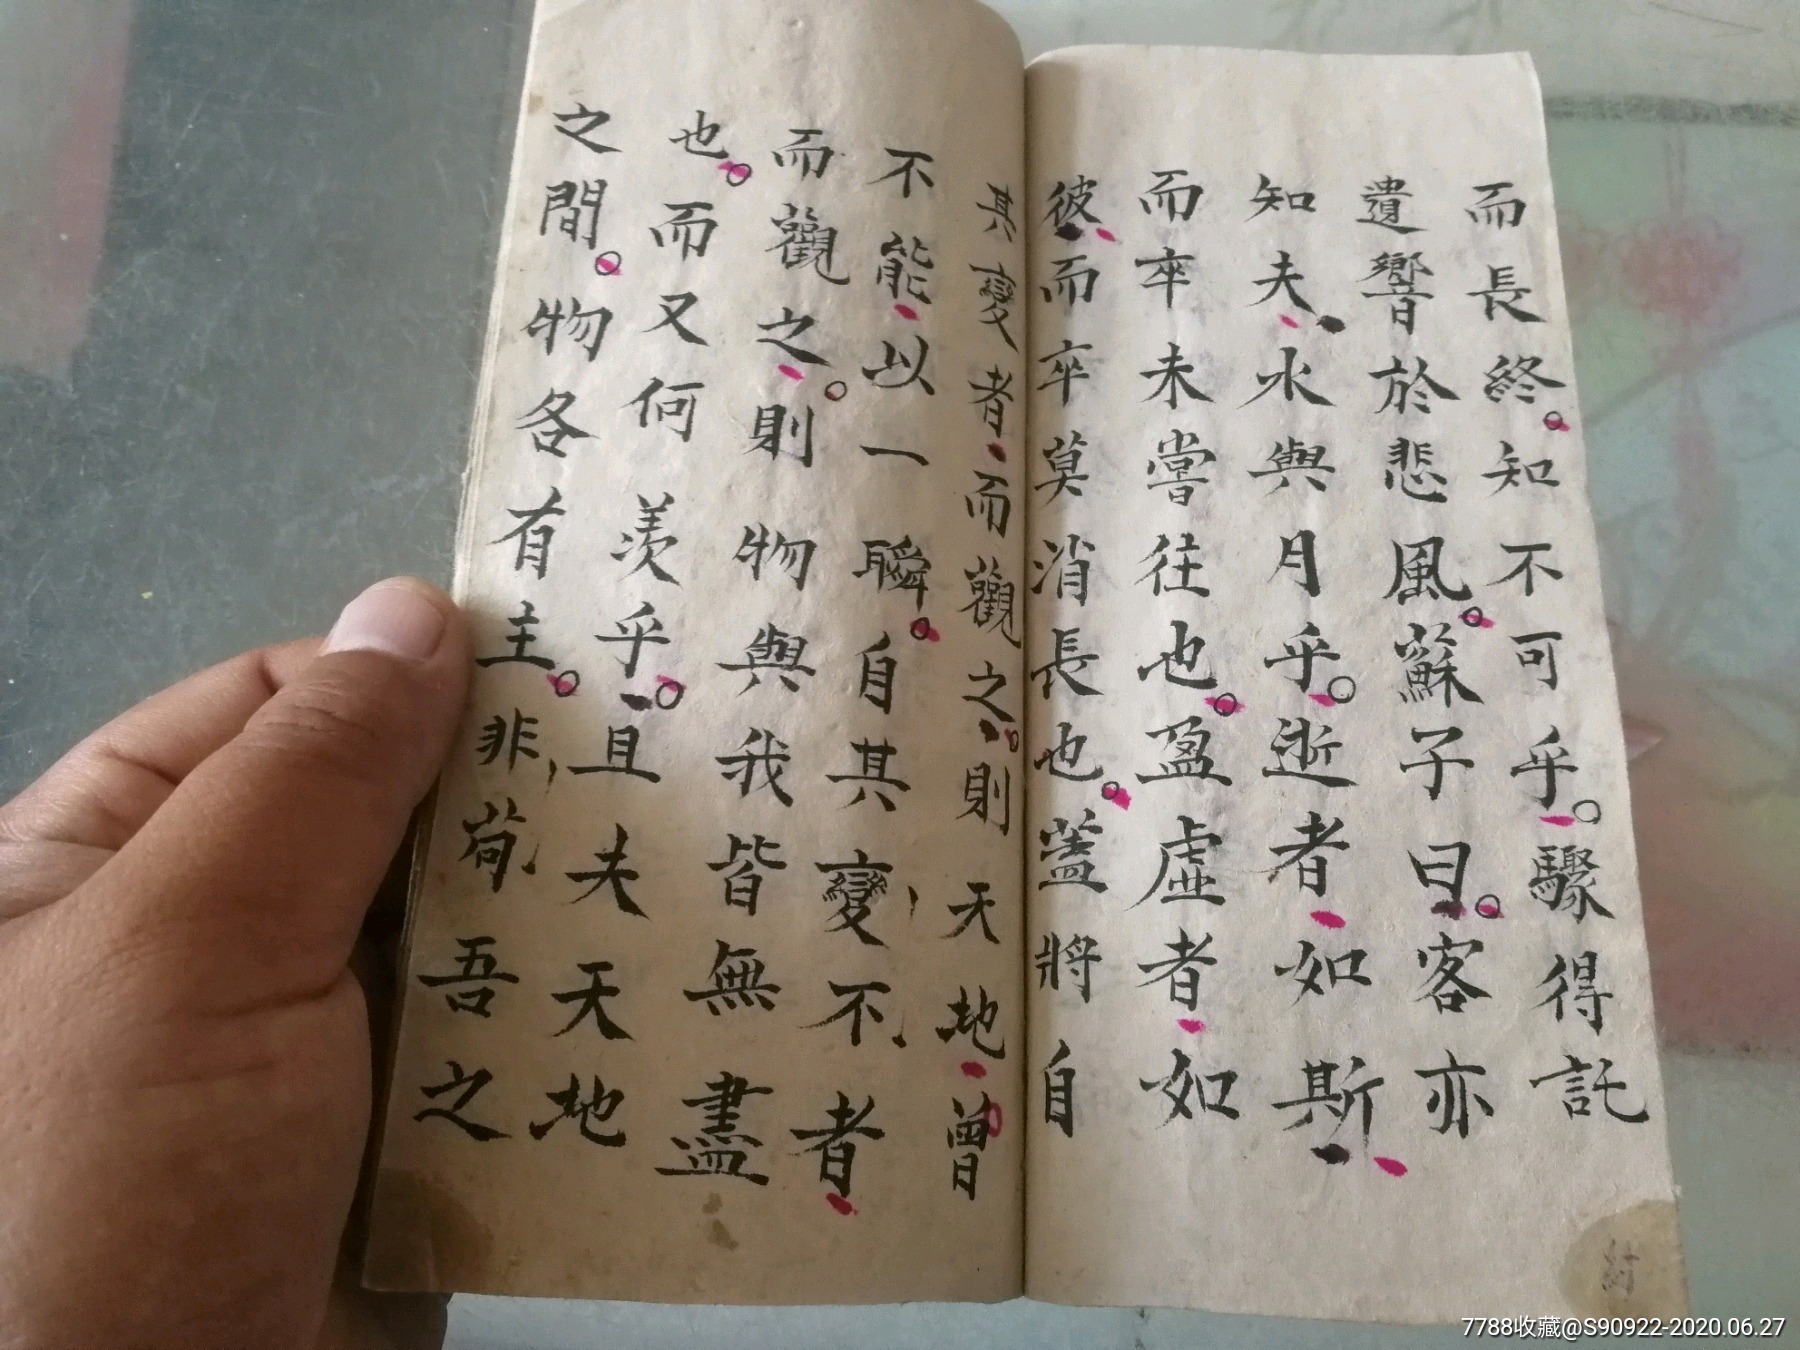 而長終。知不可乎。驟得託
遺響於悲風。蘇子曰。客亦
知夫水與月乎。逝者如斯
而卒未嘗往也。盈虛者如
彼而卒莫消長也。蓋將自
其變者而觀之。則天地曾
不能以一瞬。自其變不者
而觀之。則物與我皆無盡
也。而又何羨乎。且夫天地
之間。物各有主。非苟吾之
7788收藏@S90922-2020.06.27